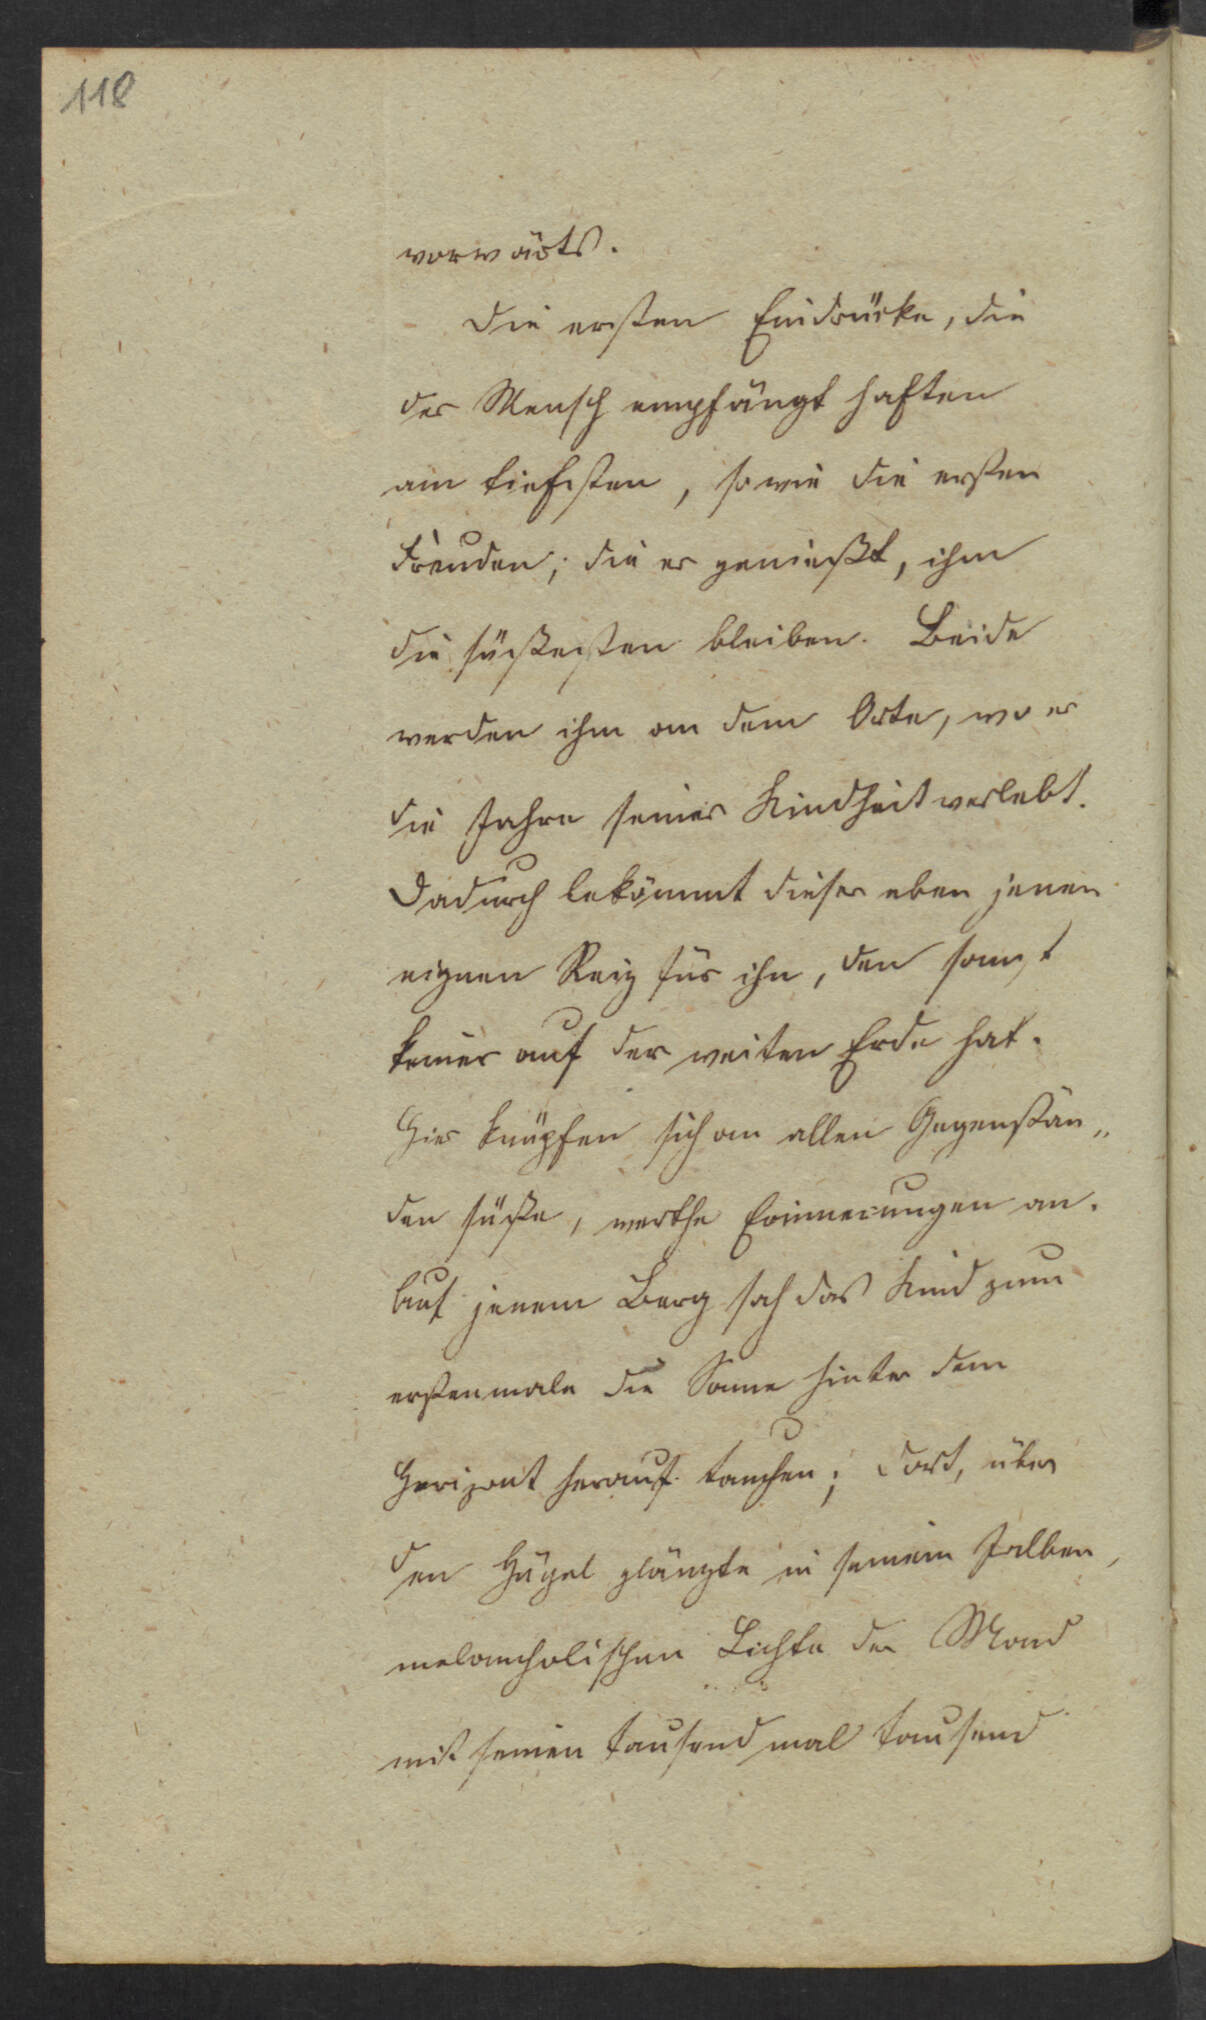 118
vorwärts.
Die ersten Eindrücke, die
der Mensch empfängt haften
am tiefsten, so wie die ersten
Freuden, die er genießt, ihm
die süßesten bleiben. Beide
werden ihm an dem Orte, wo er
die Jahre seiner Kindheit verlebt.
Dadurch bekömmt dieser eben jenen
eignen Reiz für ihn, den sonst
keiner auf der weiten Erde hat.
Hier knüpfen sich an allen Gegenstän„
den süße, werthe Erinnerungen an.
Auf jenem Berg sah das Kind zum
erstenmale die Sonne hinter dem
Horizont herauf tauchen; dort, über
den Hügel glänzte in seinem
melancholischen Lichte der Mond
mit seinen tausend mal tausend